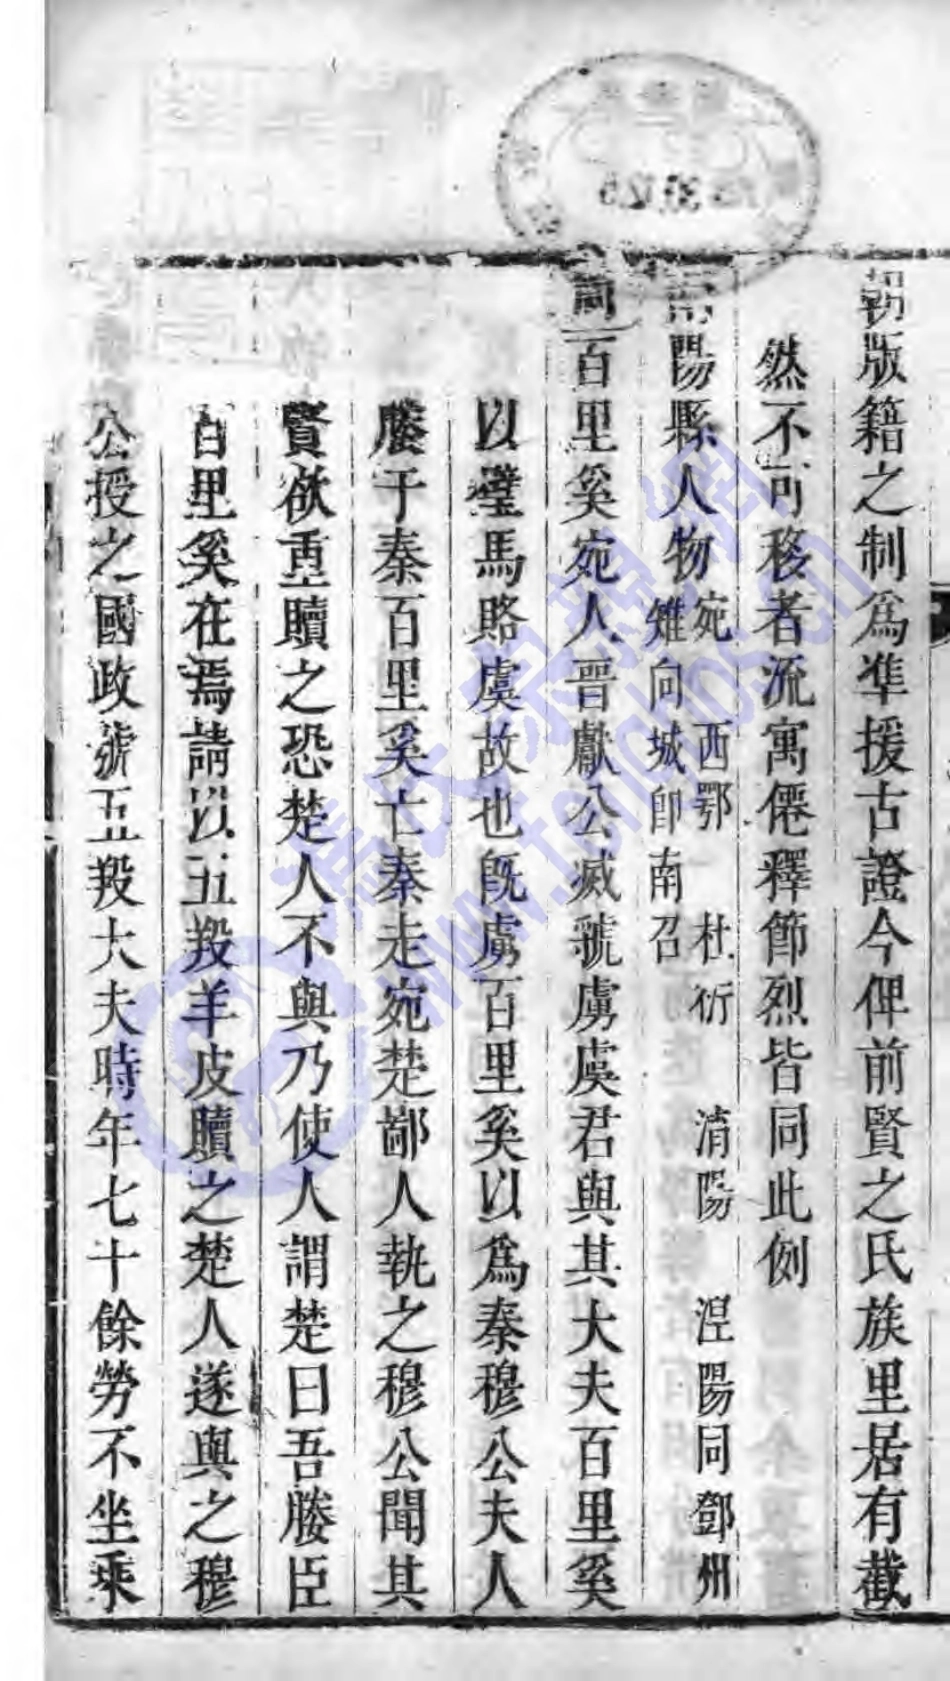 朝版籍之制爲準援古證今俾前賢之氏族里居有截
然不可移者流寓僊釋節烈皆同此例
陽縣人物宛 西鄂 杜衍 淯陽 涅陽同鄧州
雉向城卽南召
周百里奚宛人晉獻公滅虢虜虞君與其大夫百里奚
以璧馬賂虞故也旣虜百里奚以爲秦穆公夫人
媵于秦百里奚亡秦走宛楚鄙人執之穆公聞其
賢欲重贖之恐楚人不與乃使人謂楚曰吾媵臣
百里奚在焉請以五羖羊皮贖之楚人遂與之穆
公授之國政號五羖大夫時年七十餘勞不坐乘